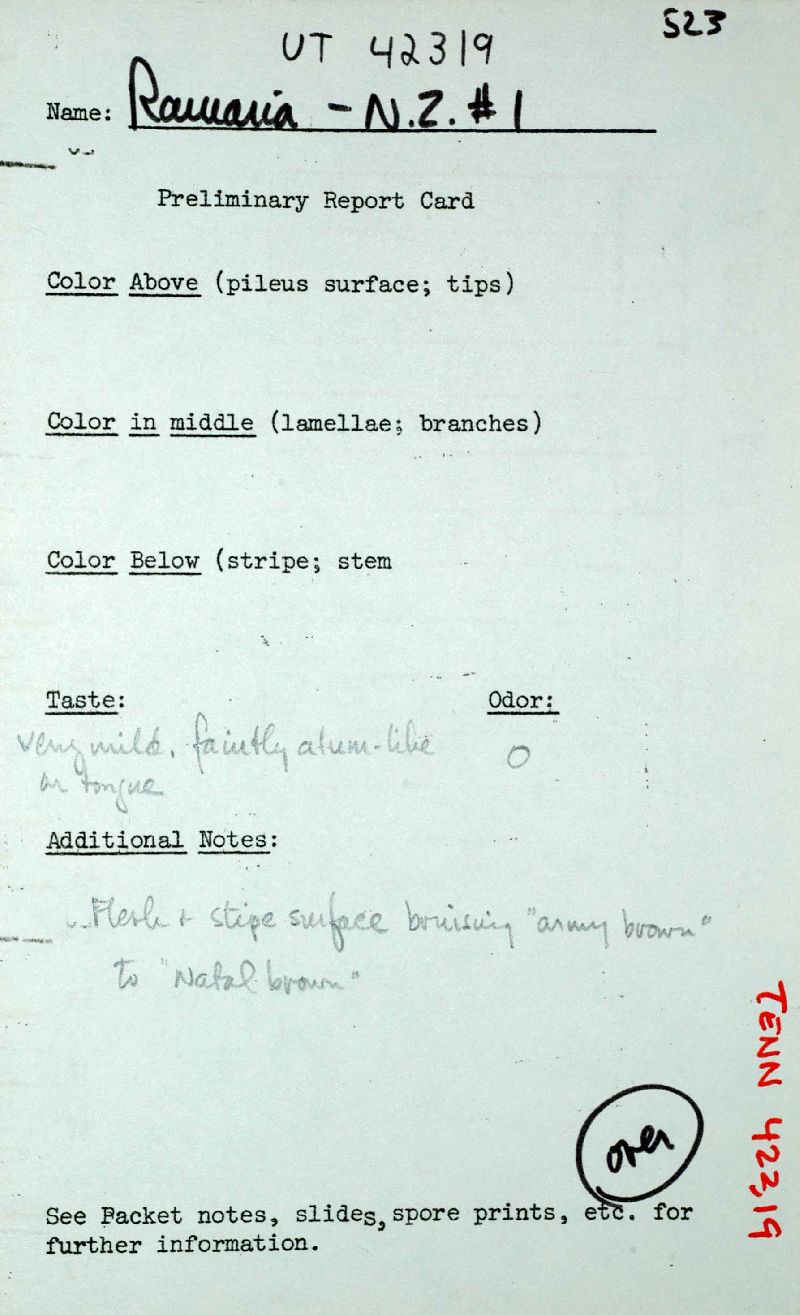 523
UT 42319
Name: Ramaria - N.Z. #1
Preliminary Report Card
Color Above (pileus surface; tips)
Color in middle (lamellae; branches)
Color Below (stripe; stem
Taste: Odor:
very mild, faintly alum-like O
on tongue
Additional Notes:
Flesh + stipe surface bruising "army brown"
to "Natal brown"
TENN 42319
over
See Packet notes, slides, spore prints, etc. for
further information.